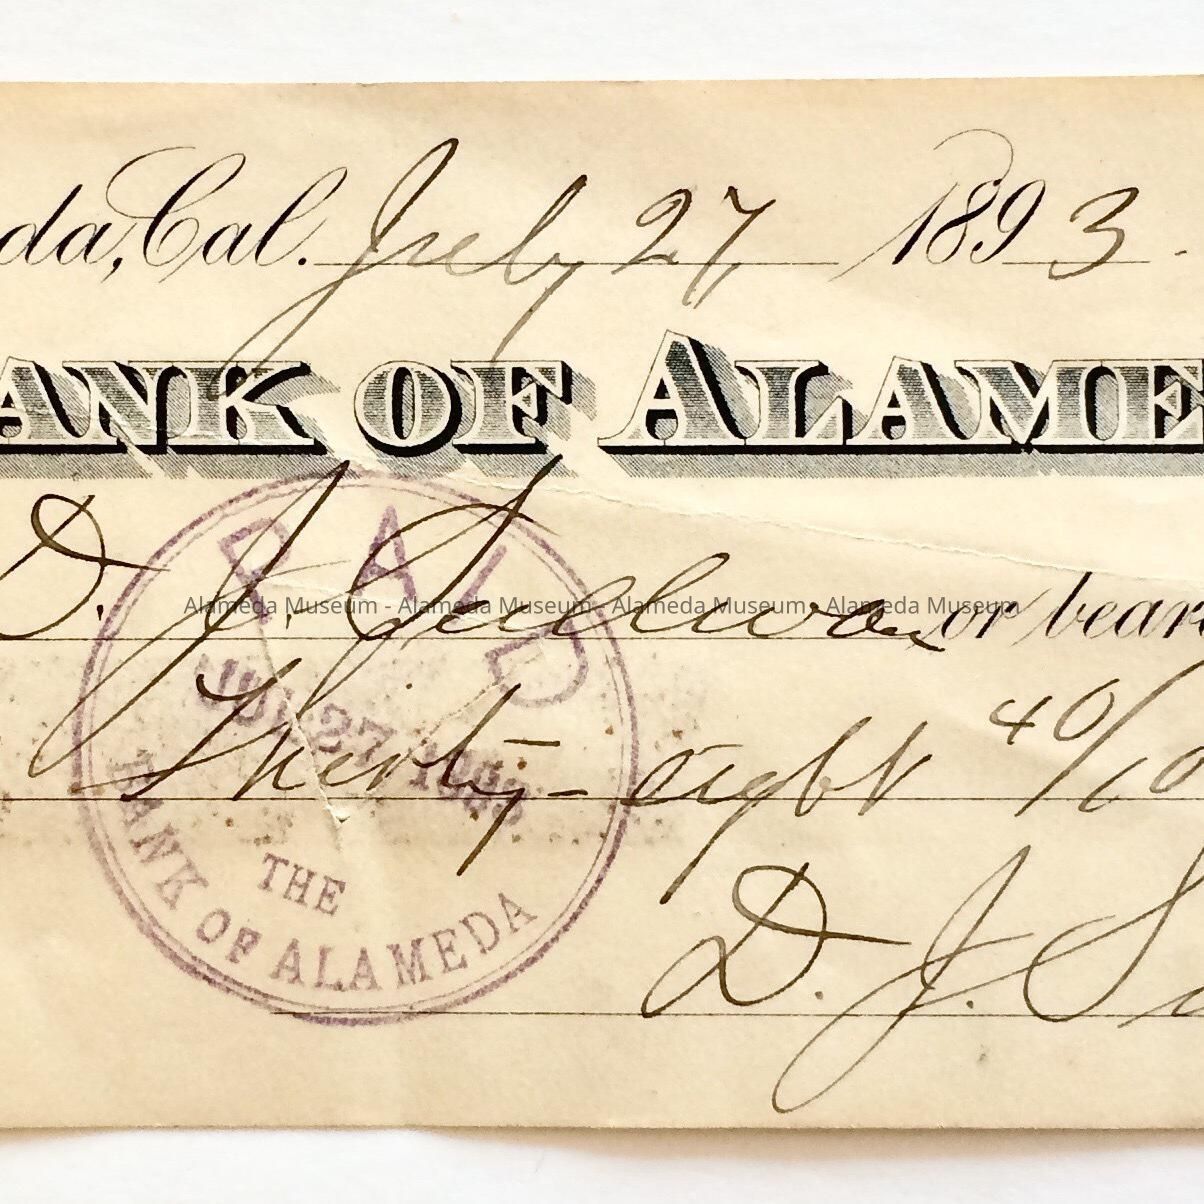 da, Cal. July 27, 1893.
BANK OF ALAME
D. J. Sullivan or bear
Thirty-eight 40/10
D. J. S
PAID
JUL 27 1893
THE
BANK OF ALAMEDA
Alameda Museum - Alameda Museum - Alameda Museum - Alameda Museum